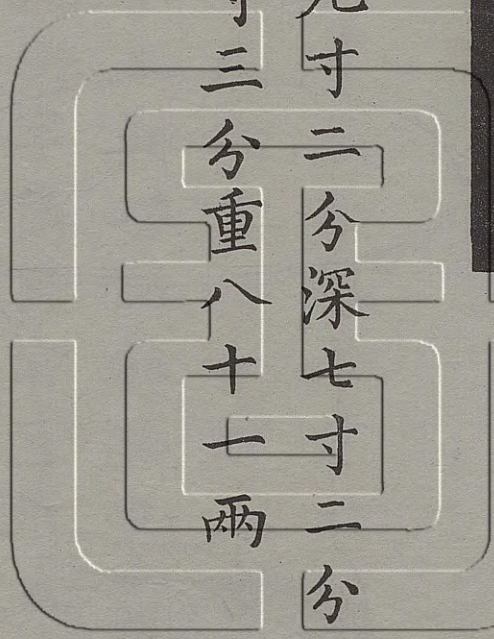 寸二分深七寸二分
三分重八十一兩